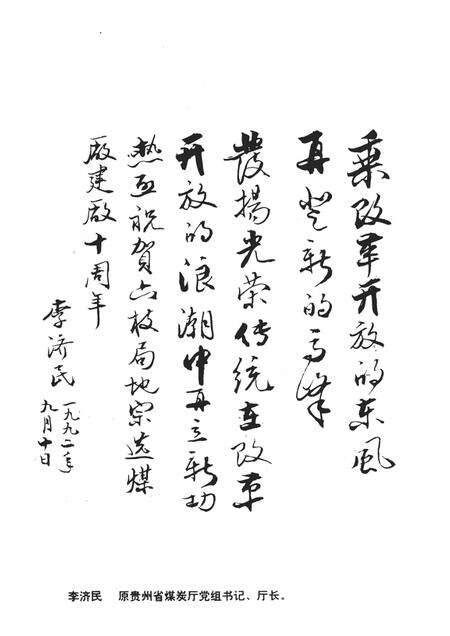 乘改革开放的东風
再登新的高峰
發揚光荣传统在改革
开放的浪潮中再立新功
热烈祝贺六枝局地宗选煤
厰建厰十周年
李济民
一九九二年
九月十日
李济民 原贵州省煤炭厅党组书记、厅长。